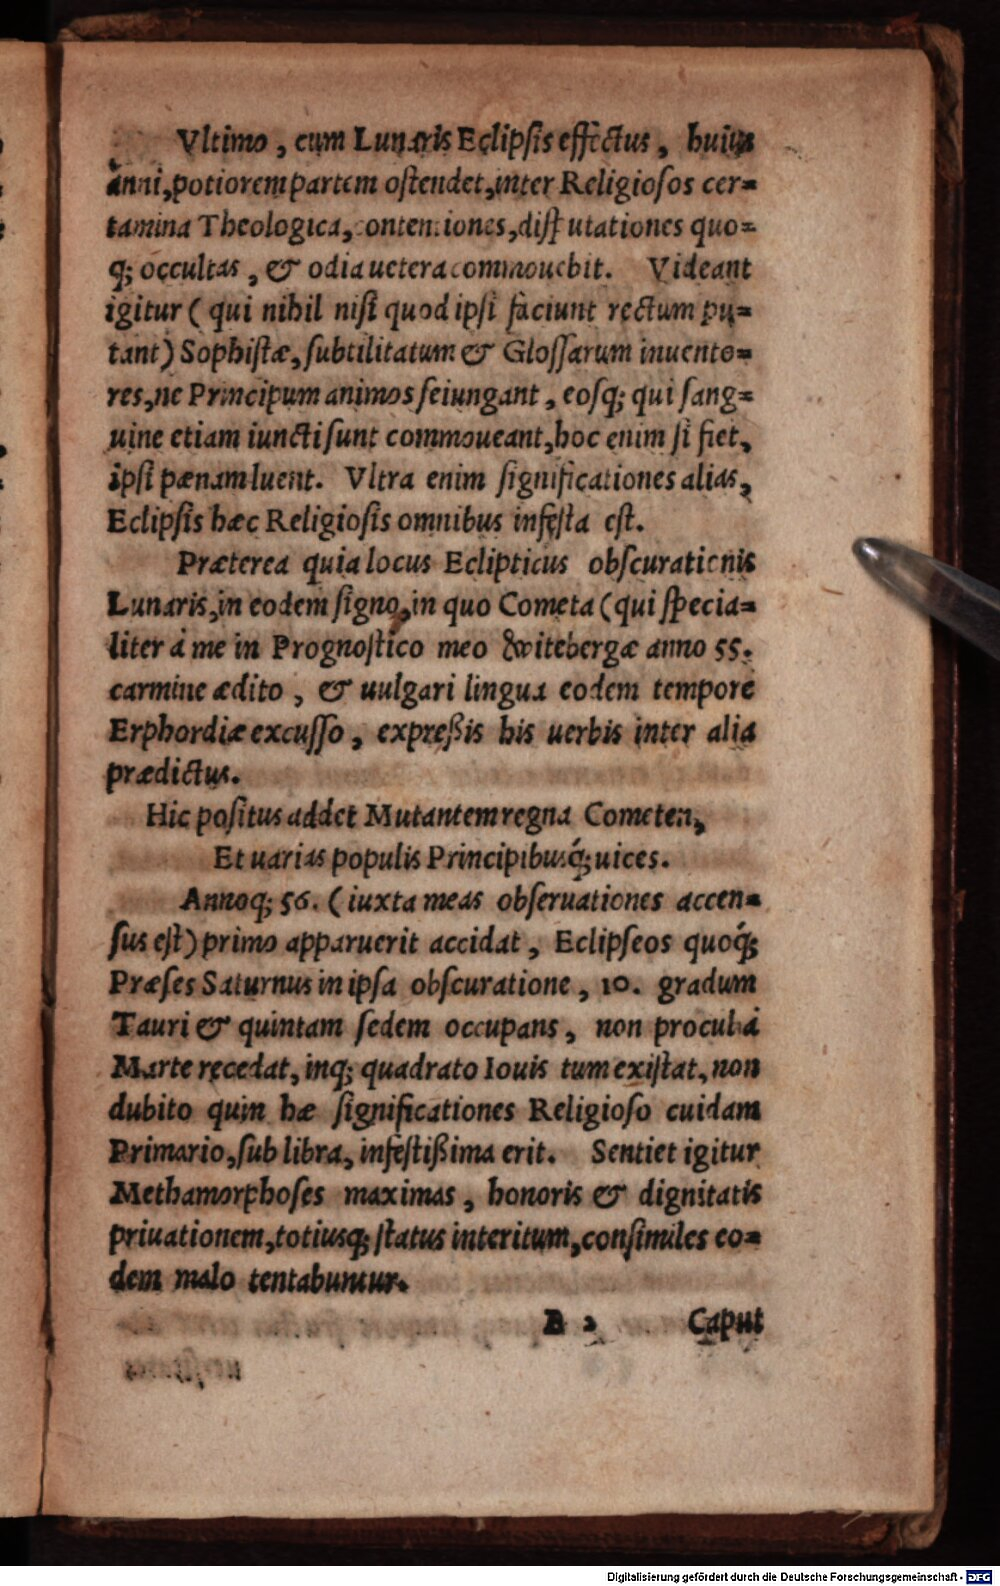 Vltimo, cum Lunaris Eclipsis effectus, huius
anni, potiorem partem ostendet, inter Religiosos cer=
tamina Theologica, contentiones, disputationes quo=
q; occultas, & odia uetera commouebit. Videant
igitur (qui nihil nisi quod ipsi faciunt rectum pu=
tant) Sophistæ, subtilitatum & Glossarum inuento=
res, ne Principum animos seiungant, eosq; qui sang=
uine etiam iuncti sunt commoueant, hoc enim si fiet,
ipsi pænam luent. Vltra enim significationes alias,
Eclipsis hæc Religiosis omnibus infesta est.
Præterea quia locus Eclipticus obscurationis
Lunaris, in eodem signo, in quo Cometa (qui specia=
liter à me in Prognostico meo Witebergæ anno 55.
carmine ædito, & uulgari lingua eodem tempore
Erphordiæ excusso, expreßis his uerbis inter alia
prædictus.
Hic positus addet Mutantem regna Cometen,
Et uarias populis Principibusq́; uices.
Annoq; 56. (iuxta meas obseruationes accen=
sus est) primo apparuerit accidat, Eclipseos quoq́;
Præses Saturnus in ipsa obscuratione, 10. gradum
Tauri & quintam sedem occupans, non procul à
Marte recedat, inq; quadrato Iouis tum existat, non
dubito quin hæ significationes Religioso cuidam
Primario, sub libra, infestißima erit. Sentiet igitur
Methamorphoses maximas, honoris & dignitatis
priuationem, totiusq; status interitum, consimiles eo=
dem malo tentabuntur.
B 2 Caput
Digitalisierung gefördert durch die Deutsche Forschungsgemeinschaft - DFG